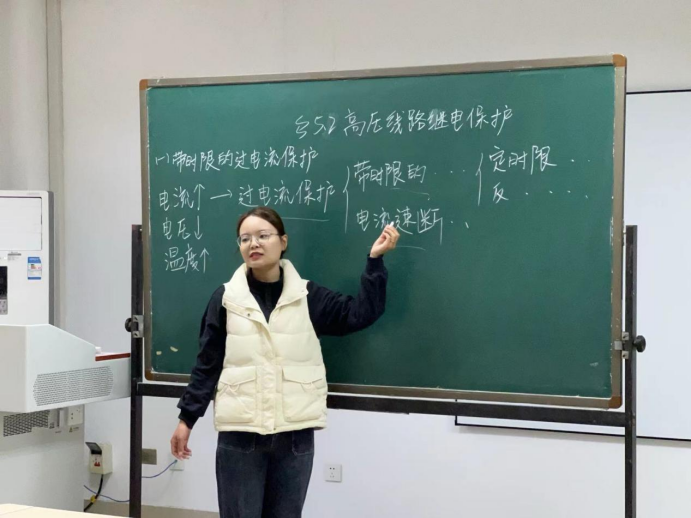 §5.2 高压线路继电保护
(一)带时限的过电流保护
电流↑ → 过电流保护 { 带时限的… { 定时限…
反….
电压↓
电流速断…
温度↑